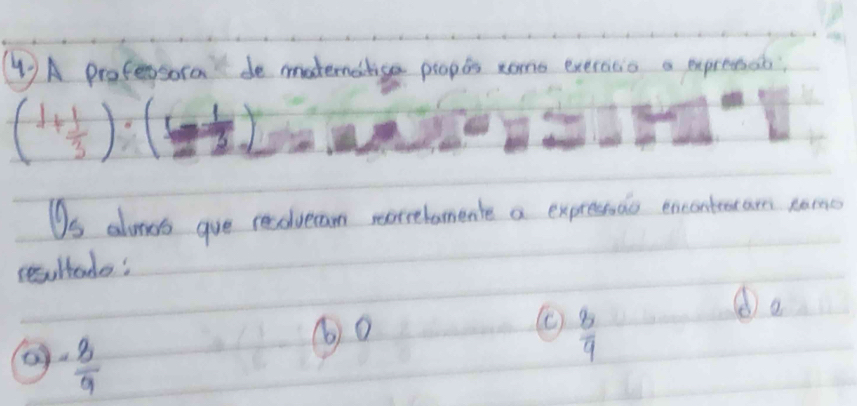 4-) A professora de matemática propôs como exercício a expressão:
(1+1/3) : (1-1/3)
Os alunos que resolveram corretamente a expressão encontraram como
resultado:
a) -8/9 b) 0 c) 8/9 d) 2